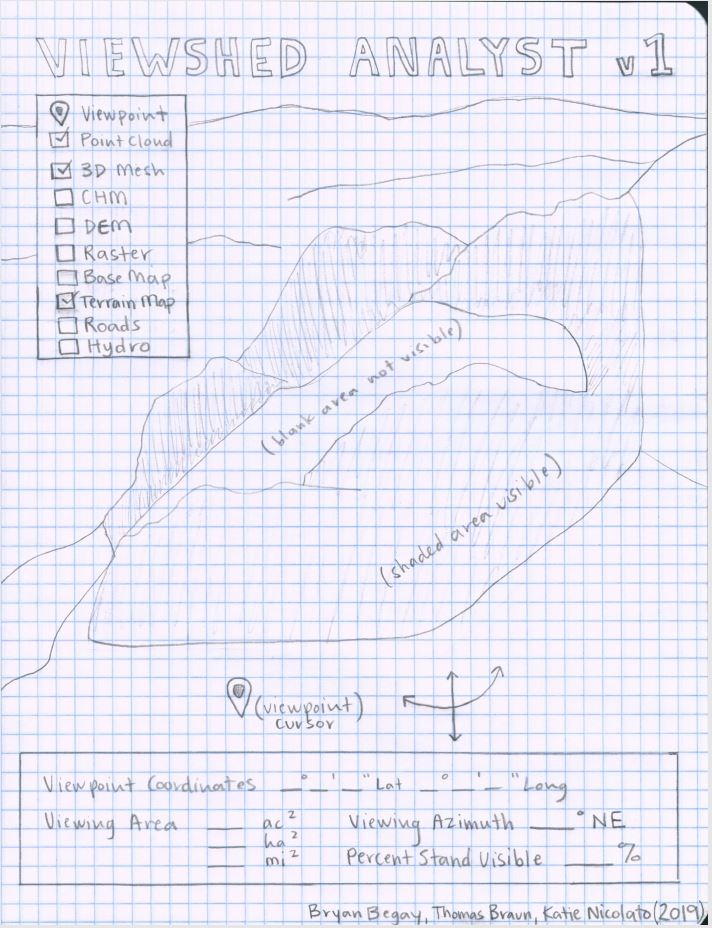 VIEWSHED ANALYST v1
Viewpoint
Point Cloud
3D Mesh
CHM
DEM
Raster
Base Map
Terrain Map
Roads
Hydro
(blank area not visible)
(shaded area visible)
(viewpoint)
cursor
Viewpoint Coordinates _° _' _" Lat _° _' _" Long
Viewing Area ___ ac²
___ ha²
___ mi²
Viewing Azimuth ___° NE
Percent Stand Visible ___ %
Bryan Begay, Thomas Braun, Katie Nicolato (2019)